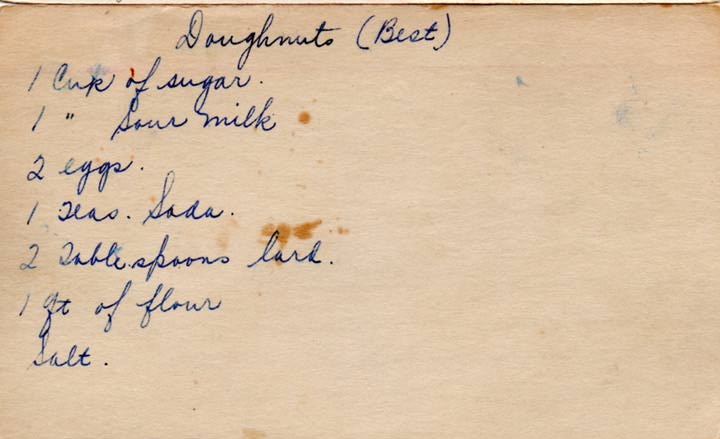 Doughnuts (Best)
1 Cup of sugar.
1 " Sour milk
2 eggs.
1 Teas. Soda.
2 Tablespoons lard.
1 qt of flour
Salt.